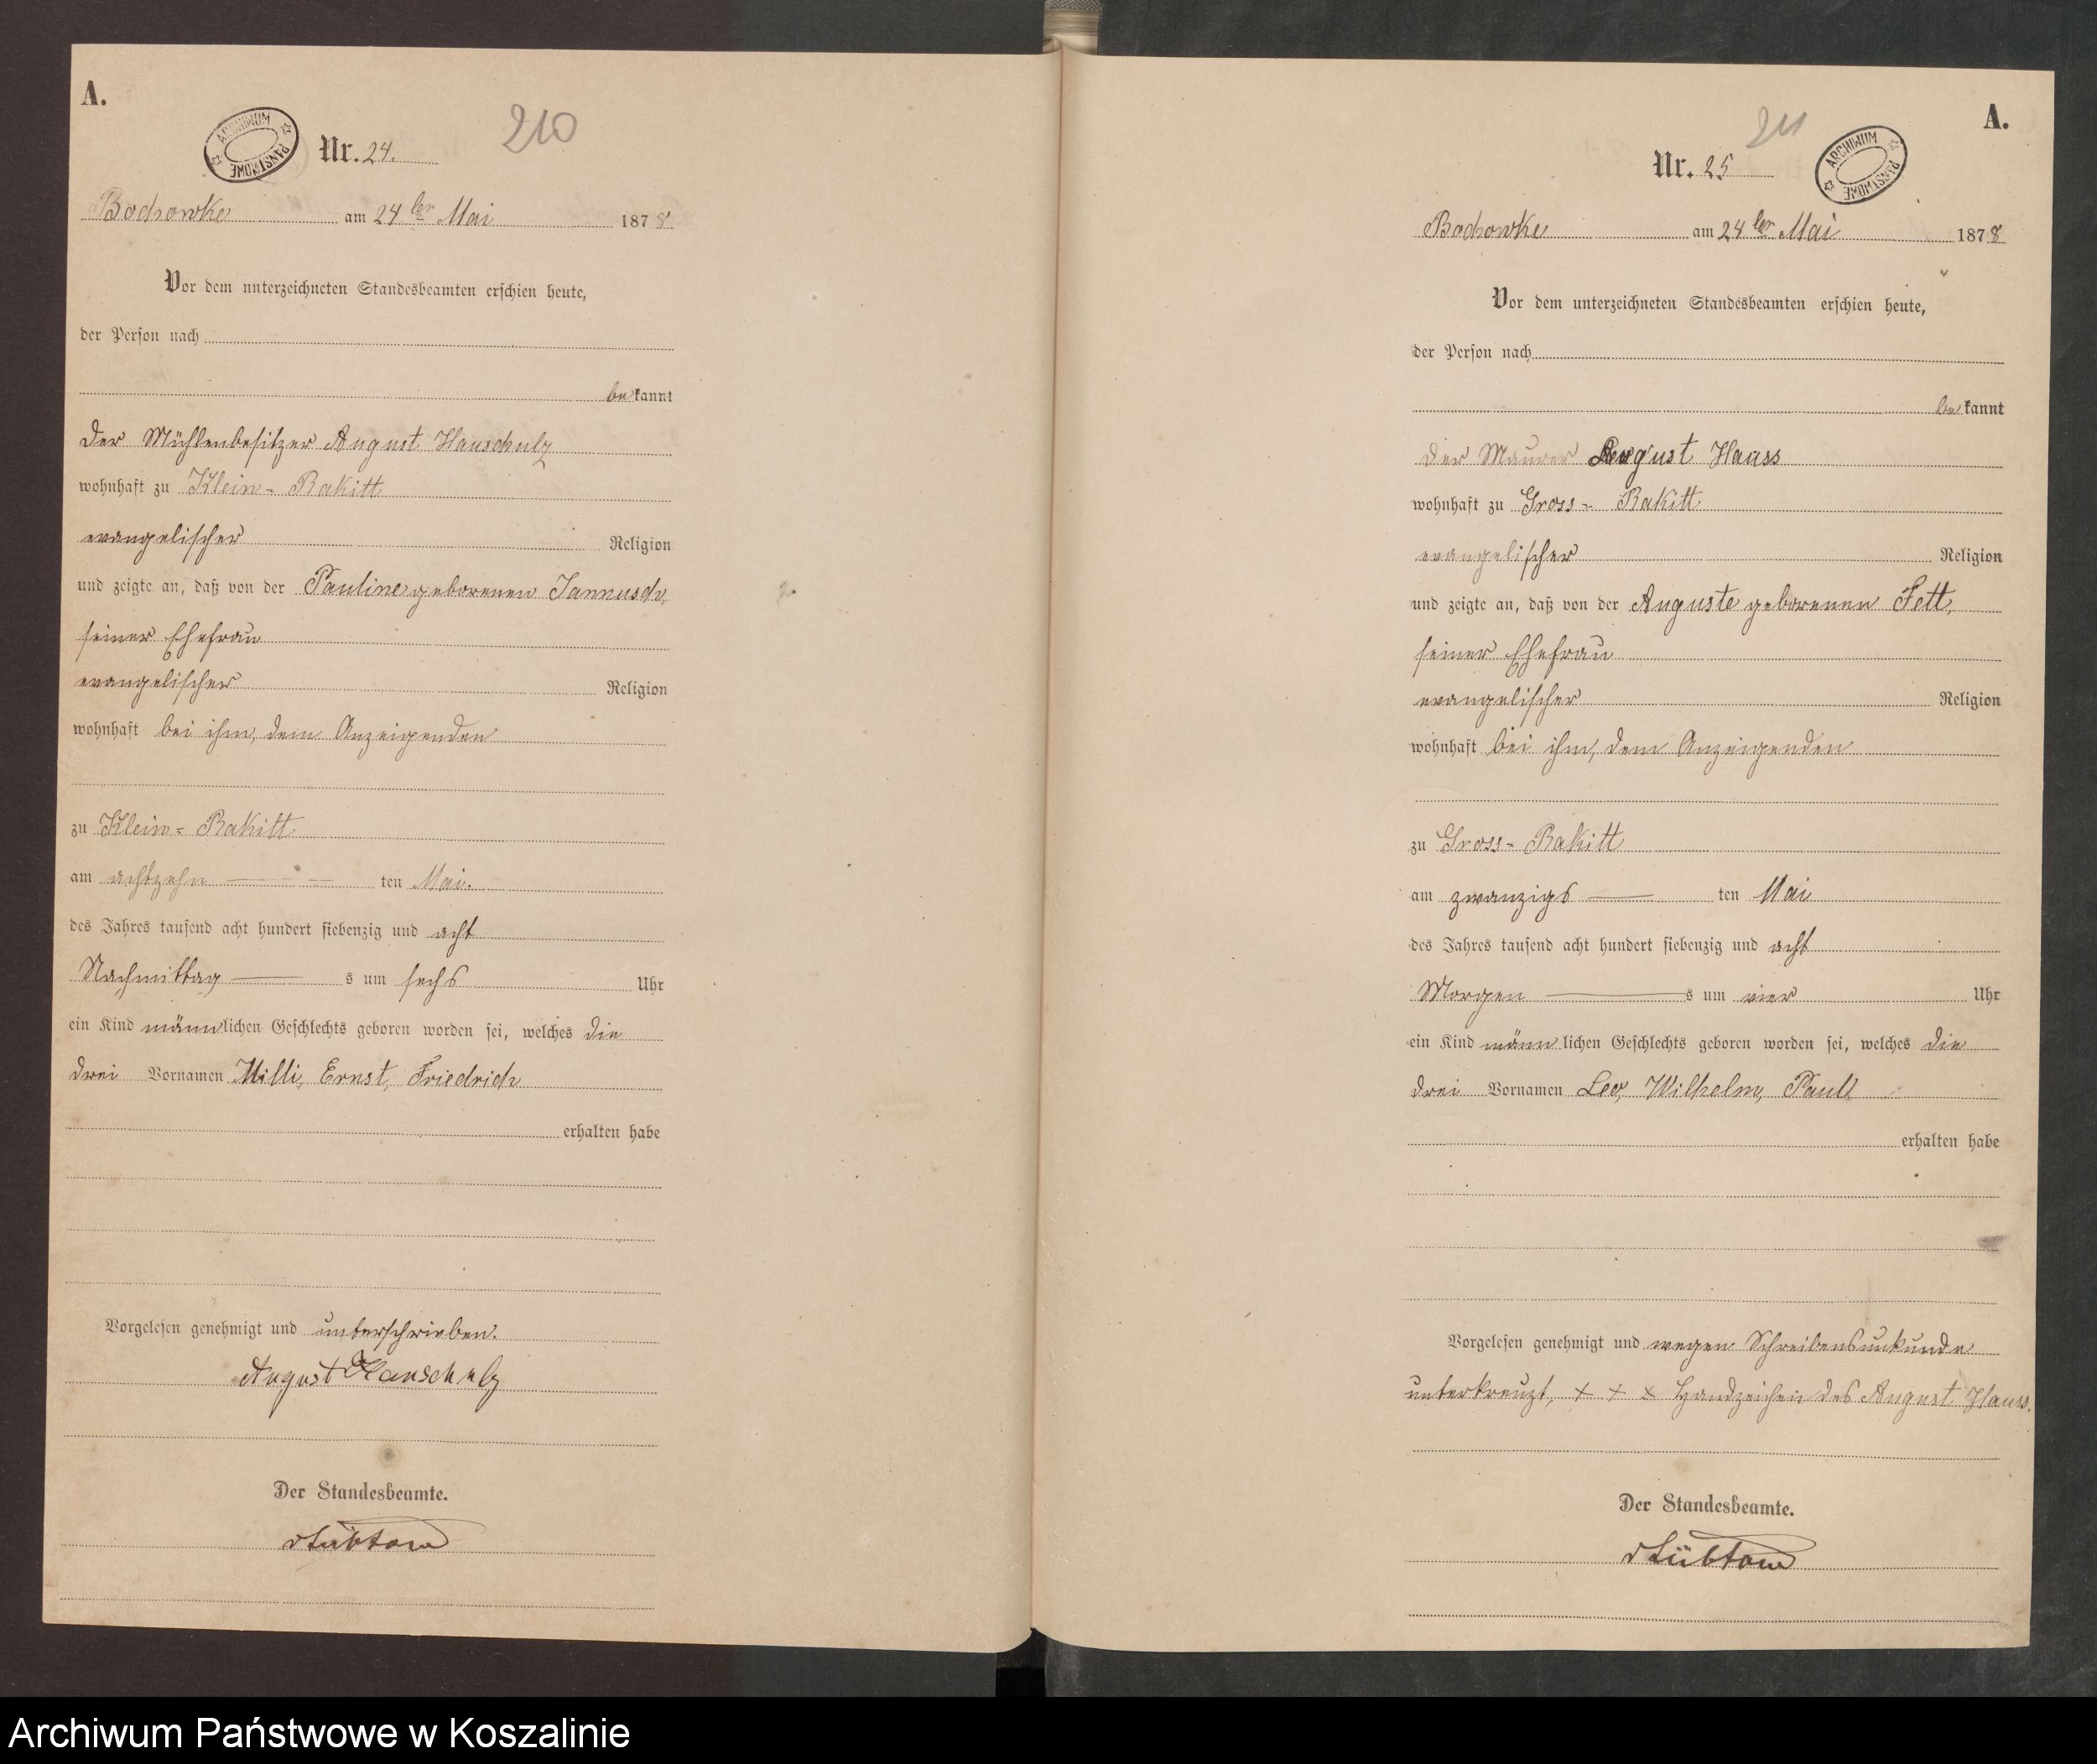 A.
ARCHIWUM PAŃSTWOWE
Nr. 24.
210
Bochowke am 24ter Mai 1878
Vor dem unterzeichneten Standesbeamten erschien heute,
der Person nach
bekannt
der Mühlenbesitzer August Hauschulz
wohnhaft zu Klein-Rakitt
evangelischer Religion
und zeigte an, daß von der Pauline geborenen Jannusch,
seiner Ehefrau
evangelischer Religion
wohnhaft bei ihm, dem Anzeigenden
zu Klein-Rakitt
am achtzehn ten Mai.
des Jahres tausend acht hundert siebenzig und acht
Nachmittag s um sechs Uhr
ein Kind männlichen Geschlechts geboren worden sei, welches die
drei Vornamen Willi, Ernst, Friedrich
erhalten habe
Vorgelesen genehmigt und unterschrieben.
August Hauschulz
Der Standesbeamte.
A.
211
ARCHIWUM PAŃSTWOWE
Nr. 25
Bochowke am 24ter Mai 1878
Vor dem unterzeichneten Standesbeamten erschien heute,
der Person nach
bekannt
der Maurer August Hauss
wohnhaft zu Gross-Rakitt
evangelischer Religion
und zeigte an, daß von der Auguste geborenen Fett,
seiner Ehefrau
evangelischer Religion
wohnhaft bei ihm, dem Anzeigenden
zu Gross-Rakitt
am zwanzigs ten Mai
des Jahres tausend acht hundert siebenzig und acht
Morgen s um vier Uhr
ein Kind männlichen Geschlechts geboren worden sei, welches die
drei Vornamen Leo, Wilhelm, Paul
erhalten habe
Vorgelesen genehmigt und wegen Schreibensunkunde
unterkreuzt, + + + Handzeichen des August Hauss.
Der Standesbeamte.
vLübtow
Archiwum Państwowe w Koszalinie